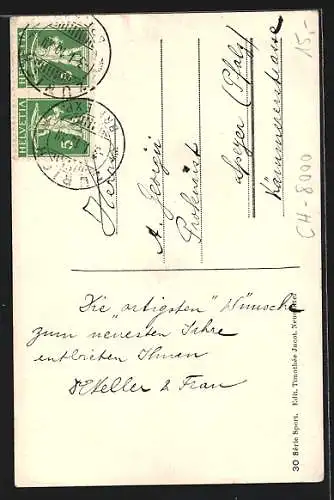 HELVETIA
5
HELVETIA
5
ZÜRICH
EXP.
Herrn
A. Georgii
Speyer (Pfalz)
15.-
CH-8000
Die "artigsten" Wünsche
zum neuesten Jahre
entbieten Ihnen
& Frau
30 Série Sport. Edit. Timothée Jacot, Neuchâtel